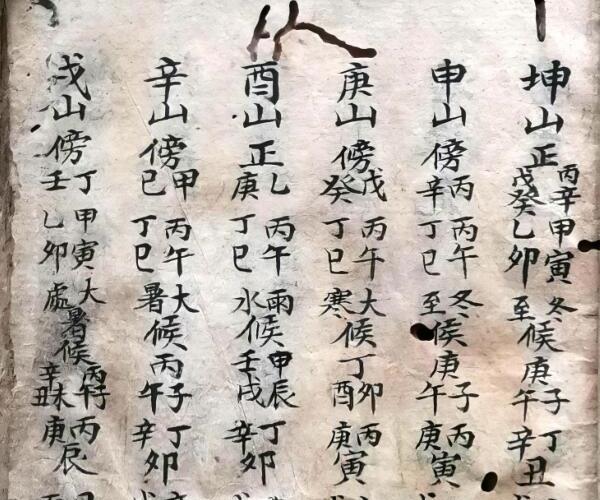 坤山正丙辛戊癸甲寅乙卯冬至候庚子午丁丑辛
申山傍丙辛丙午丁巳冬至候庚子午丙寅庚
庚山傍戊癸丙午丁巳大寒候丁卯酉丙寅庚
酉山正乙庚丙午丁巳雨水候甲辰壬戌丁卯辛
辛山傍甲巳丙午丁巳大暑候丙子午丁卯辛
戌山傍丁壬甲寅乙卯大暑處候丙子午辛未丑丙辰庚